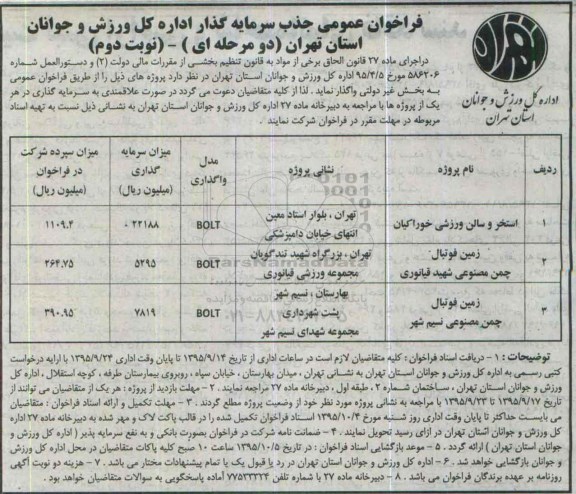 فراخوان عمومی جذب سرمایه گذار اداره کل ورزش و جوانان
استان تهران (دو مرحله ای) - (نوبت دوم)
اداره کل ورزش و جوانان
استان تهران
دراجرای ماده ۲۷ قانون الحاق برخی از مواد به قانون تنظیم بخشی از مقررات مالی دولت (۲) و دستورالعمل شماره
۵۸۶۲۰۶ مورخ ۹۵/۴/۵ اداره کل ورزش و جوانان استان تهران در نظر دارد پروژه های ذیل را از طریق فراخوان عمومی
به بخش غیر دولتی واگذار نماید . لذا از کلیه متقاضیان دعوت می گردد در صورت علاقمندی به سرمایه گذاری در هر
یک از پروژه ها با مراجعه به دبیرخانه ماده ۲۷ اداره کل ورزش و جوانان استان تهران به نشانی ذیل نسبت به تهیه اسناد
مربوطه در مهلت مقرر در فراخوان شرکت نمایند .
ردیف نام پروژه نشانی پروژه مدل واگذاری میزان سرمایه گذاری (میلیون ریال) میزان سپرده شرکت در فراخوان (میلیون ریال)
۱ استخر و سالن ورزشی خوراکیان تهران ، بلوار استاد معین انتهای خیابان دامپزشکی BOLT ۲۲۱۸۸۰ ۱۱۰۹.۴
۲ زمین فوتبال چمن مصنوعی شهید قیانوری تهران ، بزرگراه شهید تندگویان مجموعه ورزشی قیانوری BOLT ۵۲۹۵ ۲۶۴.۷۵
۳ زمین فوتبال چمن مصنوعی نسیم شهر بهارستان ، نسیم شهر پشت شهرداری مجموعه شهدای نسیم شهر BOLT ۷۸۱۹ ۳۹۰.۹۵
توضیحات : ۱ - دریافت اسناد فراخوان : کلیه متقاضیان لازم است در ساعات اداری از تاریخ ۱۳۹۵/۹/۱۴ تا پایان وقت اداری ۱۳۹۵/۹/۲۴ با ارایه درخواست
کتبی رسمی به اداره کل ورزش و جوانان استان تهران به نشانی تهران ، میدان بهارستان ، خیابان سپاه ، روبروی بیمارستان طرفه ، کوچه استقلال ، اداره کل
ورزش و جوانان استان تهران ، ساختمان شماره ۲ ، طبقه اول ، دبیرخانه ماده ۲۷ مراجعه نمایند . ۲ - مهلت بازدید از پروژه : هر یک از متقاضیان می توانند از
تاریخ ۱۳۹۵/۹/۱۷ تا ۱۳۹۵/۹/۲۳ با مراجعه به نشانی پروژه مورد نظر خود از وضعیت پروژه مطلع گردند . ۳ - مهلت تکمیل و ارائه اسناد فراخوان : متقاضیان
می بایست حداکثر تا پایان وقت اداری روز شنبه مورخ ۱۳۹۵/۱۰/۴ اسناد فراخوان تکمیل شده را در قالب پاکت لاک و مهر شده به دبیرخانه ماده ۲۷ اداره
کل ورزش و جوانان استان تهران در ازای رسید تحویل نمایند . ۴ - ضمانت نامه شرکت در فراخوان بصورت بانکی و به نفع سرمایه پذیر ( اداره کل ورزش و
جوانان استان تهران ) ارائه گردد . ۵ - موعد بازگشایی اسناد فراخوان : در تاریخ ۱۳۹۵/۱۰/۵ ساعت ۱۰ صبح کلیه پاکات متقاضیان در محل اداره کل ورزش
و جوانان بازگشایی خواهد شد . ۶ - اداره کل ورزش و جوانان استان تهران در رد یا قبول یک یا تمام پیشنهادات مختار می باشد . ۷ - هزینه دو نوبت آگهی
روزنامه بر عهده برندگان فراخوان می باشد . ۸ - دبیرخانه ماده ۲۷ با شماره تلفن ۷۷۵۳۳۳۲۴ آماده پاسخگویی به سوالات متقاضیان خواهد بود .